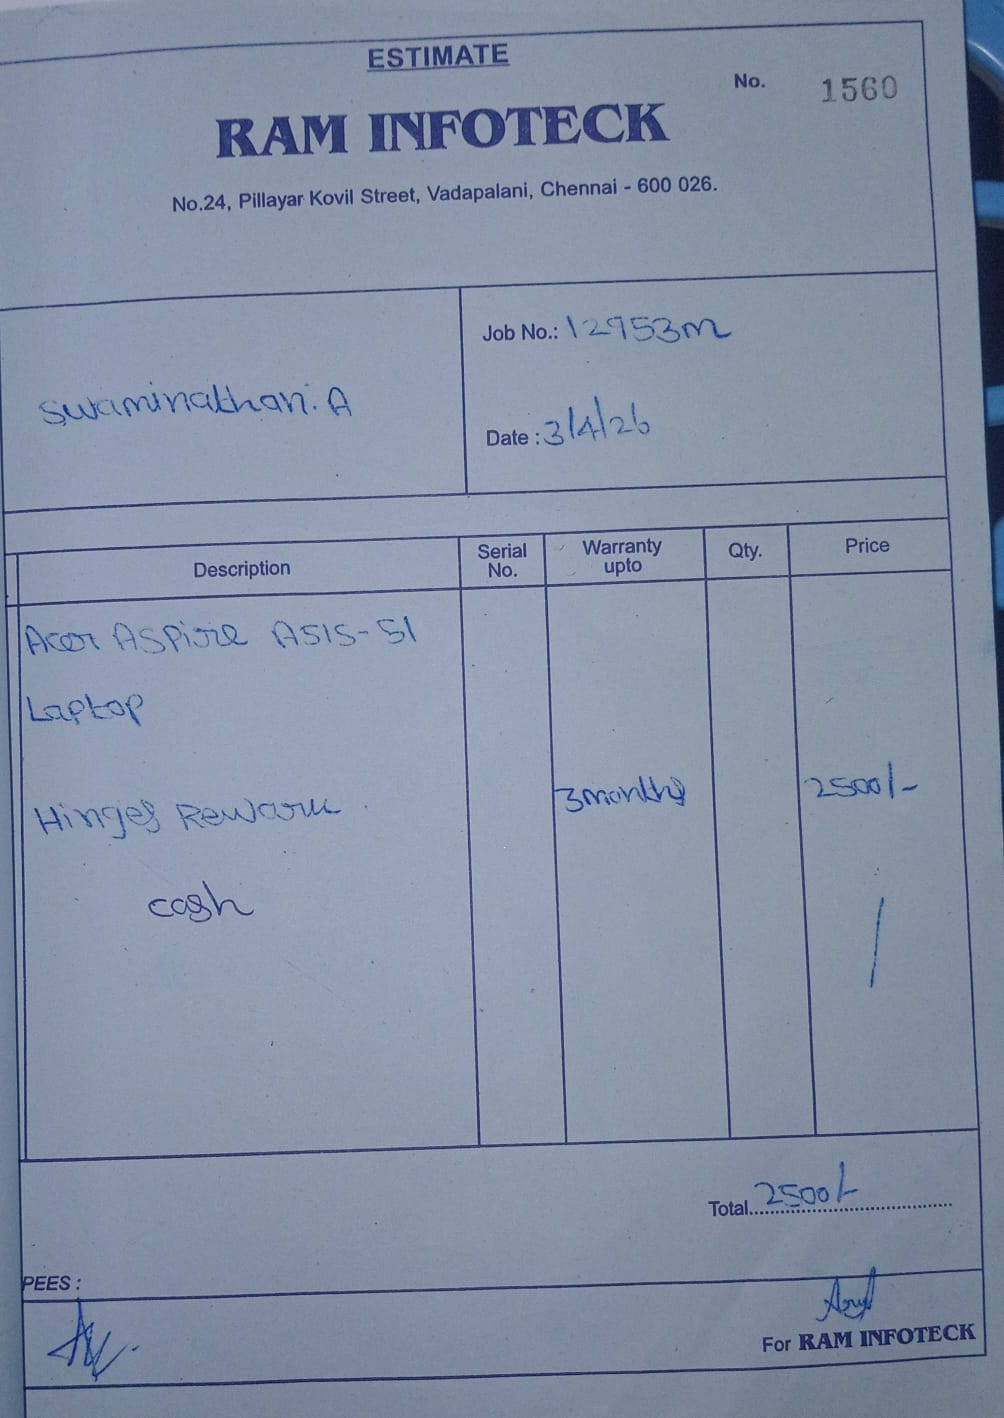 ESTIMATE
No. 1560
RAM INFOTECK
No.24, Pillayar Kovil Street, Vadapalani, Chennai - 600 026.
Job No.: 12953m
Swaminathan. A
Date : 3/4/26
Description Serial No. Warranty upto Qty. Price
Acer Aspire A515-51
Laptop
Hinges Rework 3months 2500/-
cash
Total 2500/-
PEES :
For RAM INFOTECK